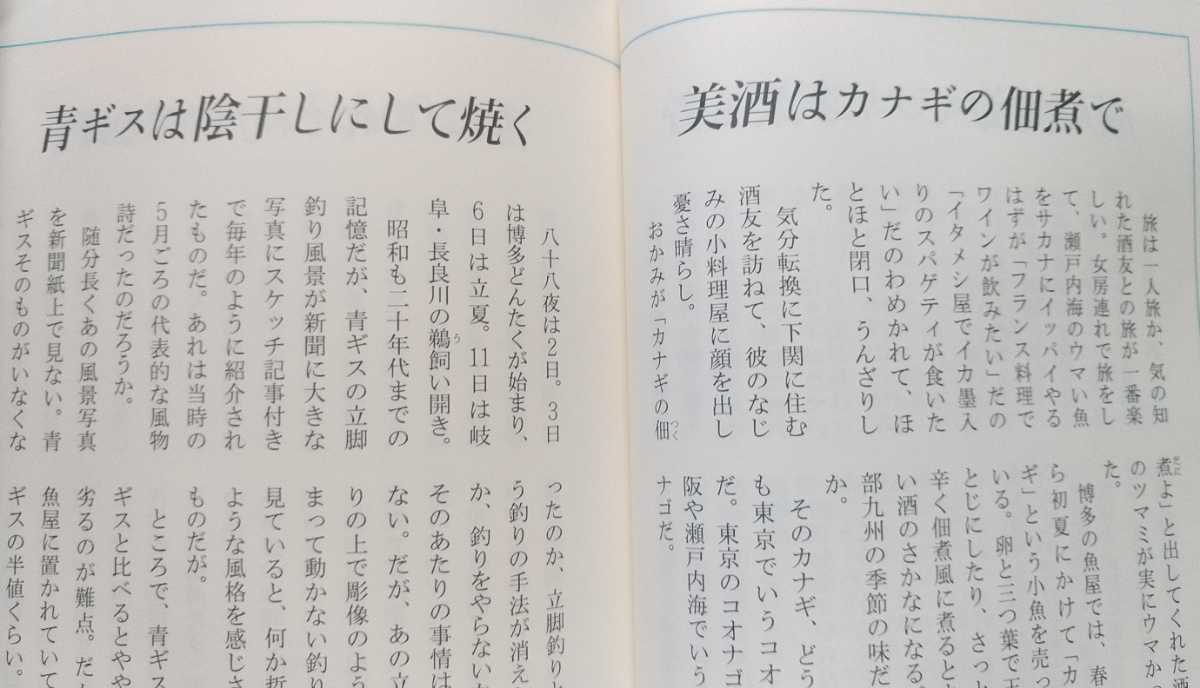 美酒はカナギの佃煮で
旅は一人旅か、気の知
れた酒友との旅が一番楽
しい。女房連れで旅をし
て、瀬戸内海のウマい魚
をサカナにイッパイやる
はずが「フランス料理で
ワインが飲みたい」だの
「イタメシ屋でイカ墨入
りのスパゲティが食いた
い」だのわめかれて、ほ
とほと閉口、うんざりし
た。
気分転換に下関に住む
酒友を訪ねて、彼のなじ
みの小料理屋に顔を出し
憂さ晴らし。
おかみが「カナギの佃
つく
煮よ」と出してくれた酒
のツマミが実にウマか
った。
博多の魚屋では、春
ら初夏にかけて「カ
ギ」という小魚を売っ
いる。卵と三つ葉で玉
とじにしたり、さっと
辛く佃煮風に煮ると
い酒のさかなになる。
部九州の季節の味だ
か。
そのカナギ、どう
も東京でいうコオ
だ。東京のコオナゴ
阪や瀬戸内海でいう
ナゴだ。
青ギスは陰干しにして焼く
八十八夜は2日。3日
は博多どんたくが始まり、
6日は立夏。11日は岐
阜・長良川の鵜飼い開き。
う
昭和も二十年代までの
記憶だが、青ギスの立脚
釣り風景が新聞に大きな
写真にスケッチ記事付き
で毎年のように紹介され
たものだ。あれは当時の
5月ごろの代表的な風物
詩だったのだろうか。
随分長くあの風景写真
を新聞紙上で見ない。青
ギスそのものがいなくな
ったのか、立脚釣りと
う釣りの手法が消え
か、釣りをやらない
そのあたりの事情は
ない。だが、あの立
りの上で彫像のよう
まって動かない釣り
見ていると、何か哲
ような風格を感じさ
ものだが。
ところで、青ギス
ギスと比べるとやや
劣るのが難点。だが
魚屋に置かれていて
ギスの半値くらい。